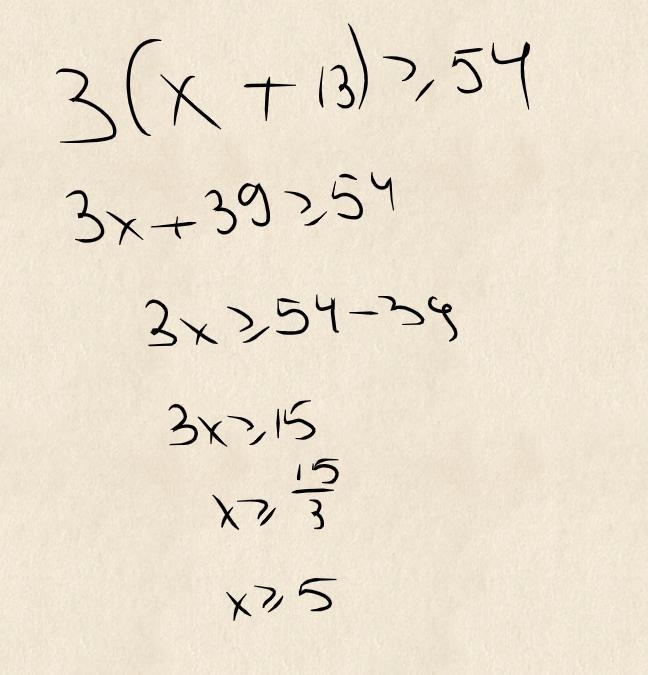 3(x + 13) ≥ 54
3x + 39 ≥ 54
3x ≥ 54 - 39
3x ≥ 15
x ≥ 15/3
x ≥ 5